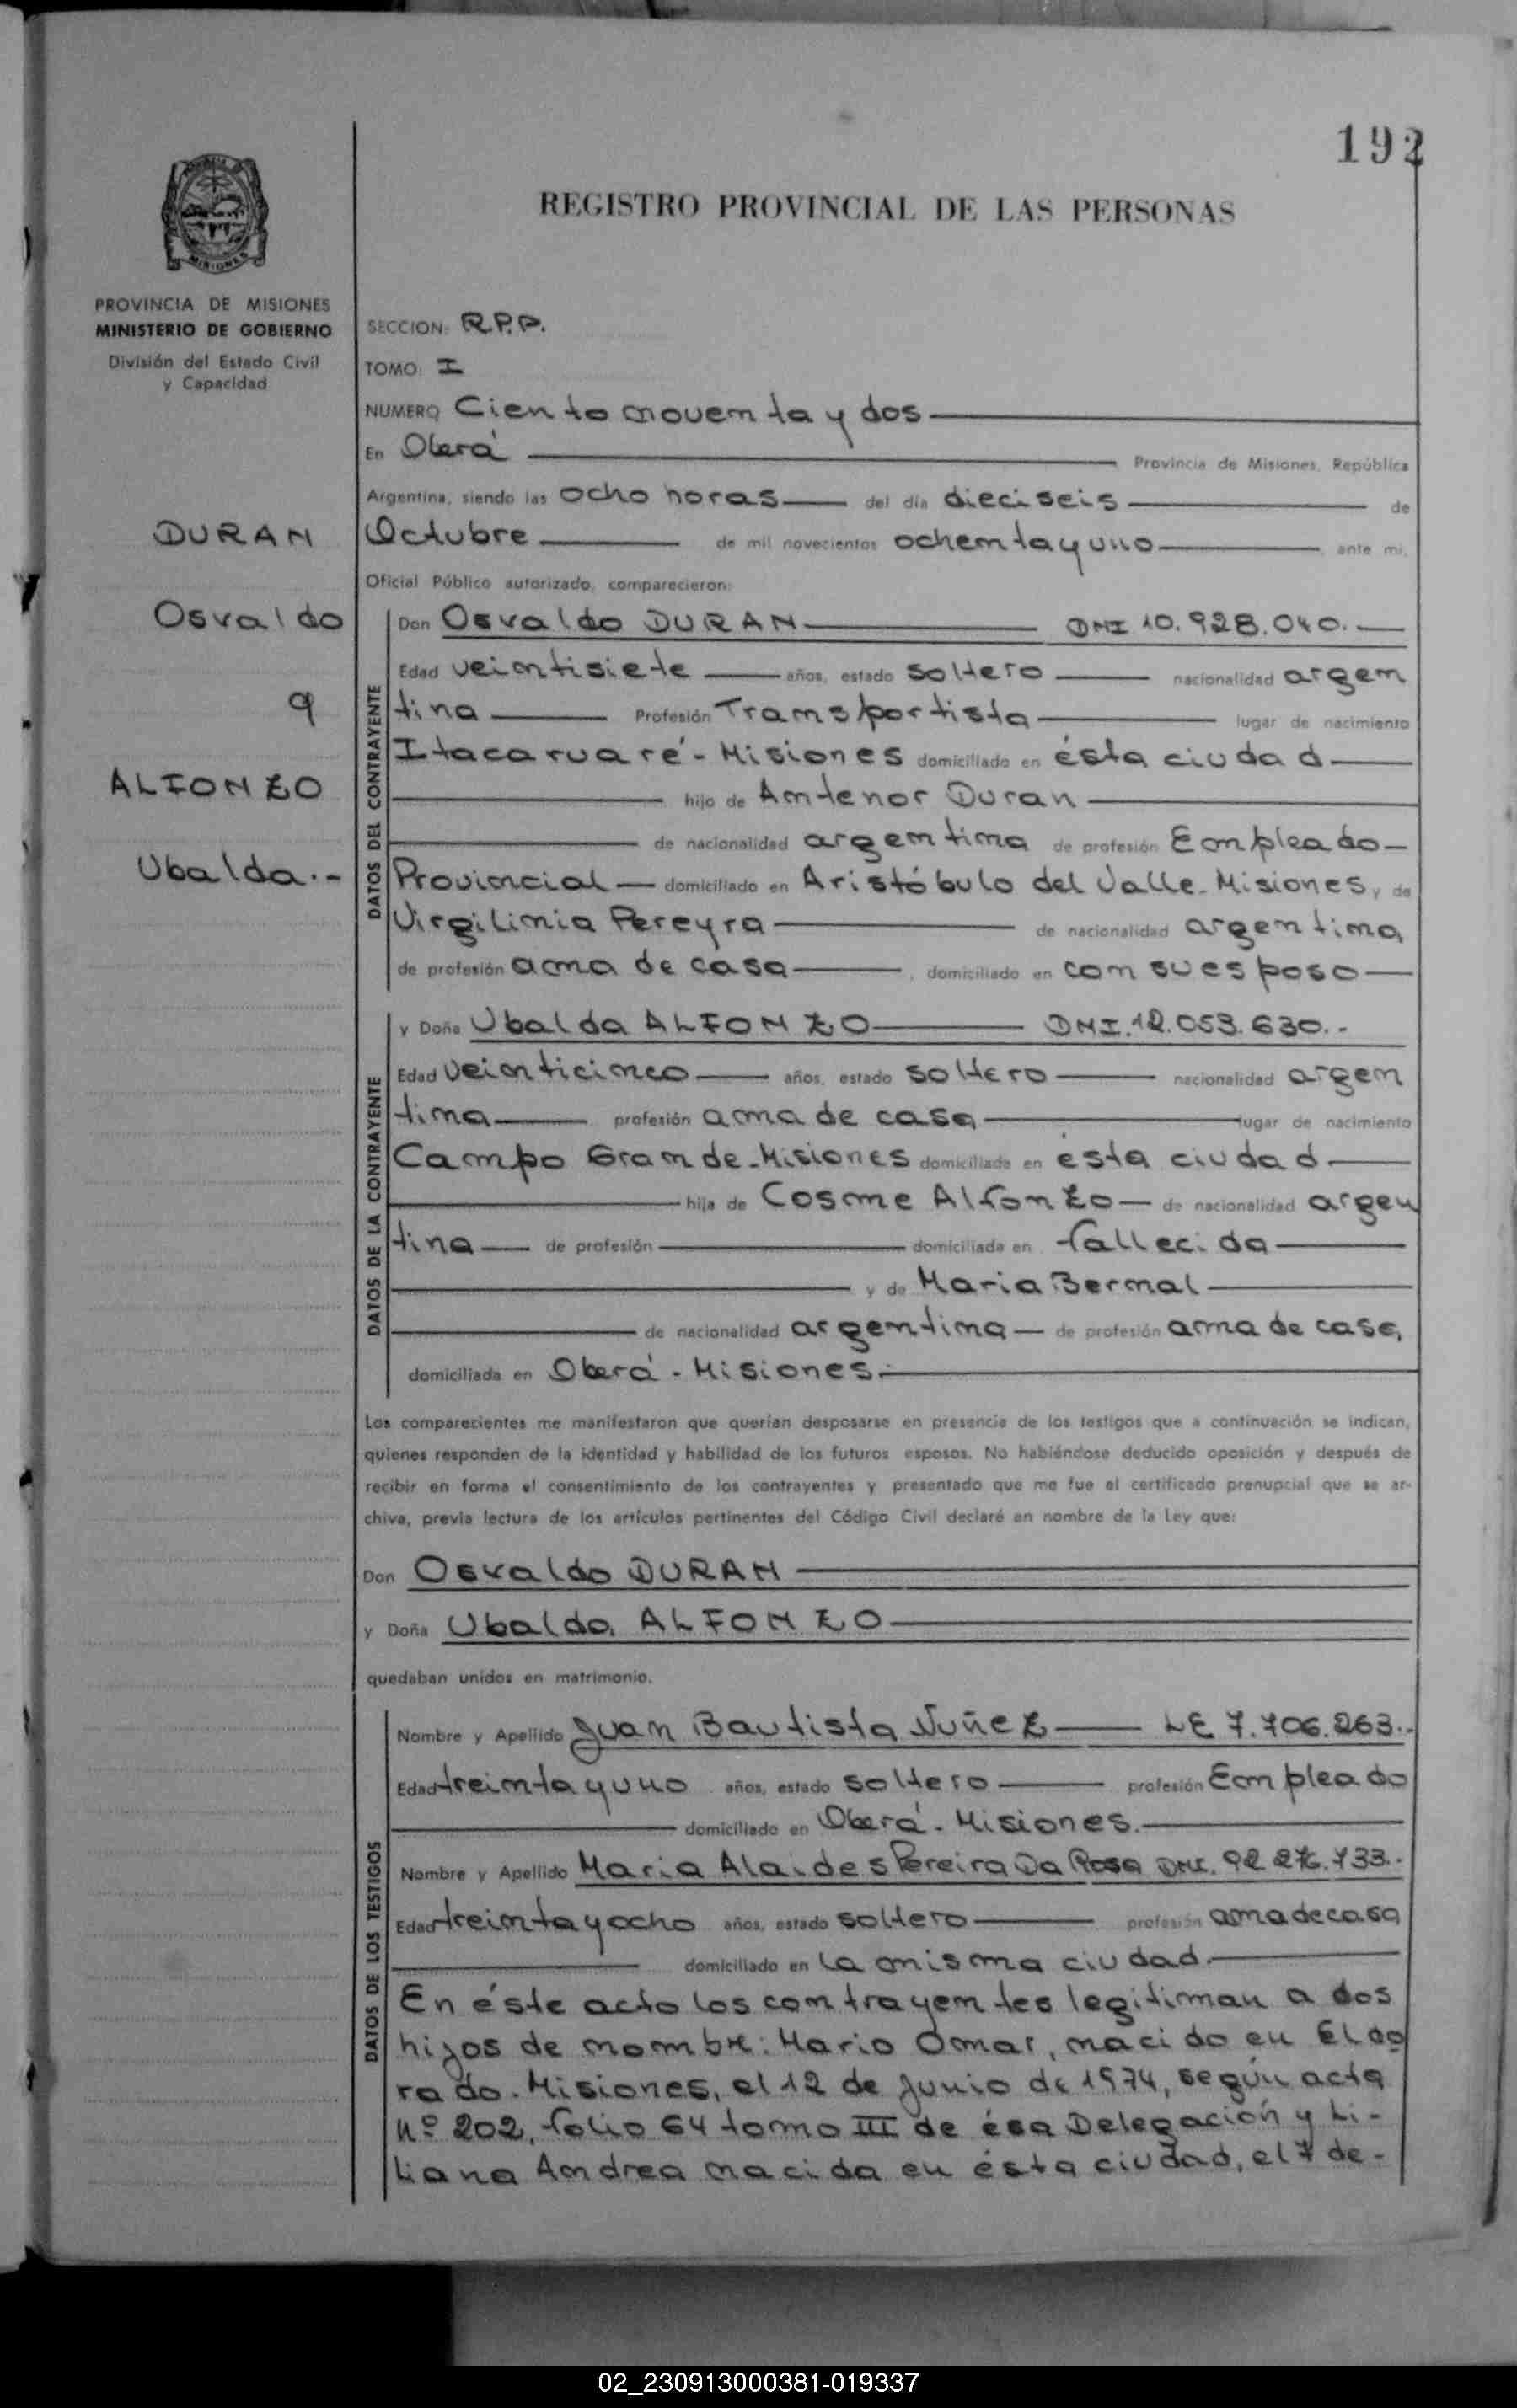 192
REGISTRO PROVINCIAL DE LAS PERSONAS
MISIONES
PROVINCIA DE MISIONES
MINISTERIO DE GOBIERNO
División del Estado Civil
y Capacidad
DURAN
Osvaldo
y
ALFONZO
Ubalda.-
SECCION: R.P.P.
TOMO: I
NUMERO Ciento noventa y dos
En Oberá Provincia de Misiones, República
Argentina, siendo las ocho horas del día dieciseis de
Octubre de mil novecientos ochenta y uno, ante mi,
Oficial Público autorizado, comparecieron:
DATOS DEL CONTRAYENTE
Don Osvaldo DURAN DNI 10.928.040.-
Edad veintisiete años, estado soltero nacionalidad argen
tina Profesión Transportista lugar de nacimiento
Itacaruaré - Misiones domiciliado en ésta ciudad
hijo de Antenor Duran
de nacionalidad argentina de profesión Empleado
Provincial domiciliado en Aristóbulo del Valle - Misiones, y de
Virgilinia Pereyra de nacionalidad argentina
de profesión ama de casa, domiciliado en con su esposo
DATOS DE LA CONTRAYENTE
y Doña Ubalda ALFONZO DNI. 12.053.630.-
Edad veinticinco años, estado soltero nacionalidad argen
tina profesión ama de casa lugar de nacimiento
Campo Grande - Misiones domiciliada en ésta ciudad
hija de Cosme Alfonzo de nacionalidad argen
tina de profesión domiciliada en fallecido
y de Maria Bernal
de nacionalidad argentina de profesión ama de casa,
domiciliada en Oberá - Misiones.
Los comparecientes me manifestaron que querían desposarse en presencia de los testigos que a continuación se indican,
quienes responden de la identidad y habilidad de los futuros esposos. No habiéndose deducido oposición y después de
recibir en forma el consentimiento de los contrayentes y presentado que me fue el certificado prenupcial que se ar-
chiva, previa lectura de los artículos pertinentes del Código Civil declaré en nombre de la Ley que:
Don Osvaldo DURAN
y Doña Ubalda ALFONZO
quedaban unidos en matrimonio.
DATOS DE LOS TESTIGOS
Nombre y Apellido Juan Bautista Nuñez LE 7.706.263.-
Edad treinta y uno años, estado soltero profesión Empleado
domiciliado en Oberá - Misiones.
Nombre y Apellido Maria Alaides Pereira Da Rosa DNI. 92 276.733.-
Edad treinta y ocho años, estado soltero profesión ama de casa
domiciliado en la misma ciudad.
En éste acto los contrayentes legitiman a dos
hijos de nombre: Mario Omar, nacido en Eldo
rado. Misiones, el 12 de Junio de 1974, según acta
Nº 202, folio 64 tomo III de ésa Delegación y Li-
liana Andrea nacida en ésta ciudad, el 7 de-
02_230913000381-019337